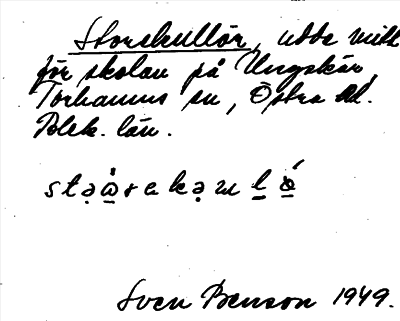 Storskullör, udde mitt
för skolan på Ungskär,
Torhamns sn, Östra hd.
Blek. län.
Sven Benson 1949.